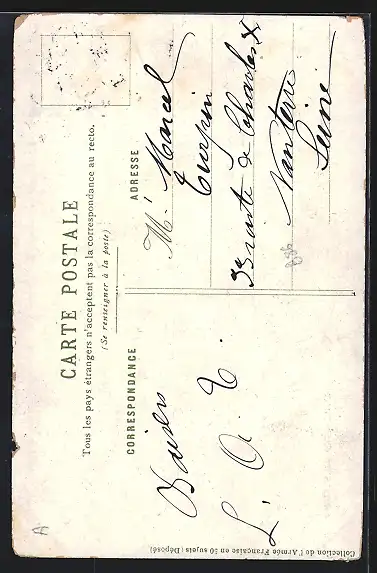 CARTE POSTALE
Tous les pays étrangers n'acceptent pas la correspondance au recto.
(Se renseigner à la poste)
CORRESPONDANCE
ADRESSE
Baisers
L. O. T.
Mr. Marcel
Turpin
Route de Charles X
Nanterre
Seine
886
A
Collection de l'Armée Française en 50 sujets (Déposé)